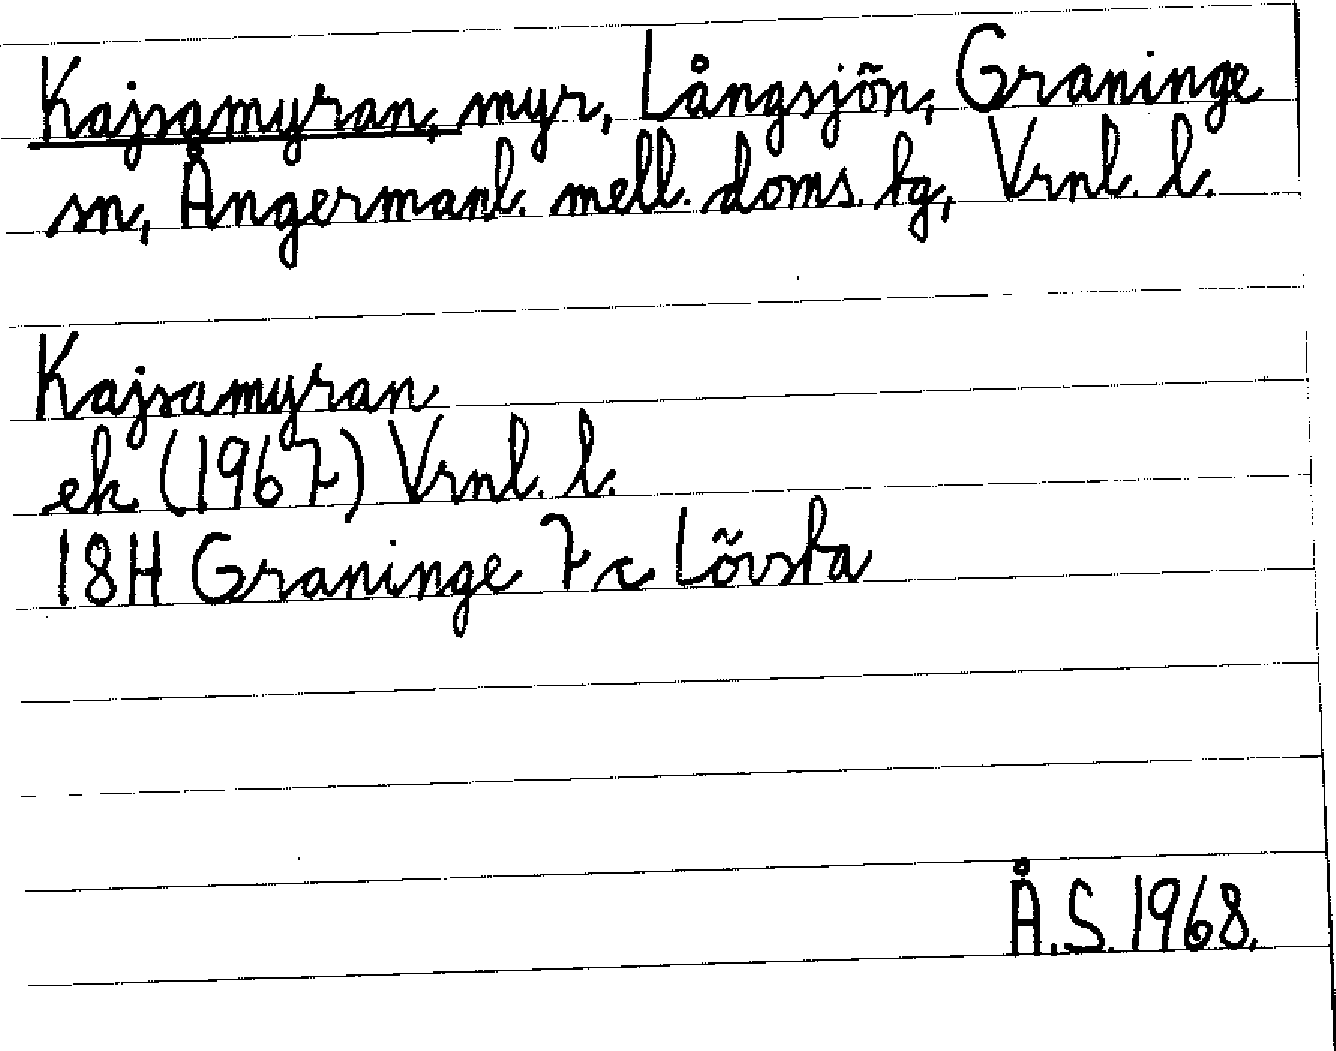 Kajsamyran, myr, Långsjön, Graninge
sn, Ångermanl. mell. doms. tg, Vrnl. l.
Kajsamyran
ek (1967) Vrnl. l.
18H Graninge 7c Lövsta
Å.S. 1968.